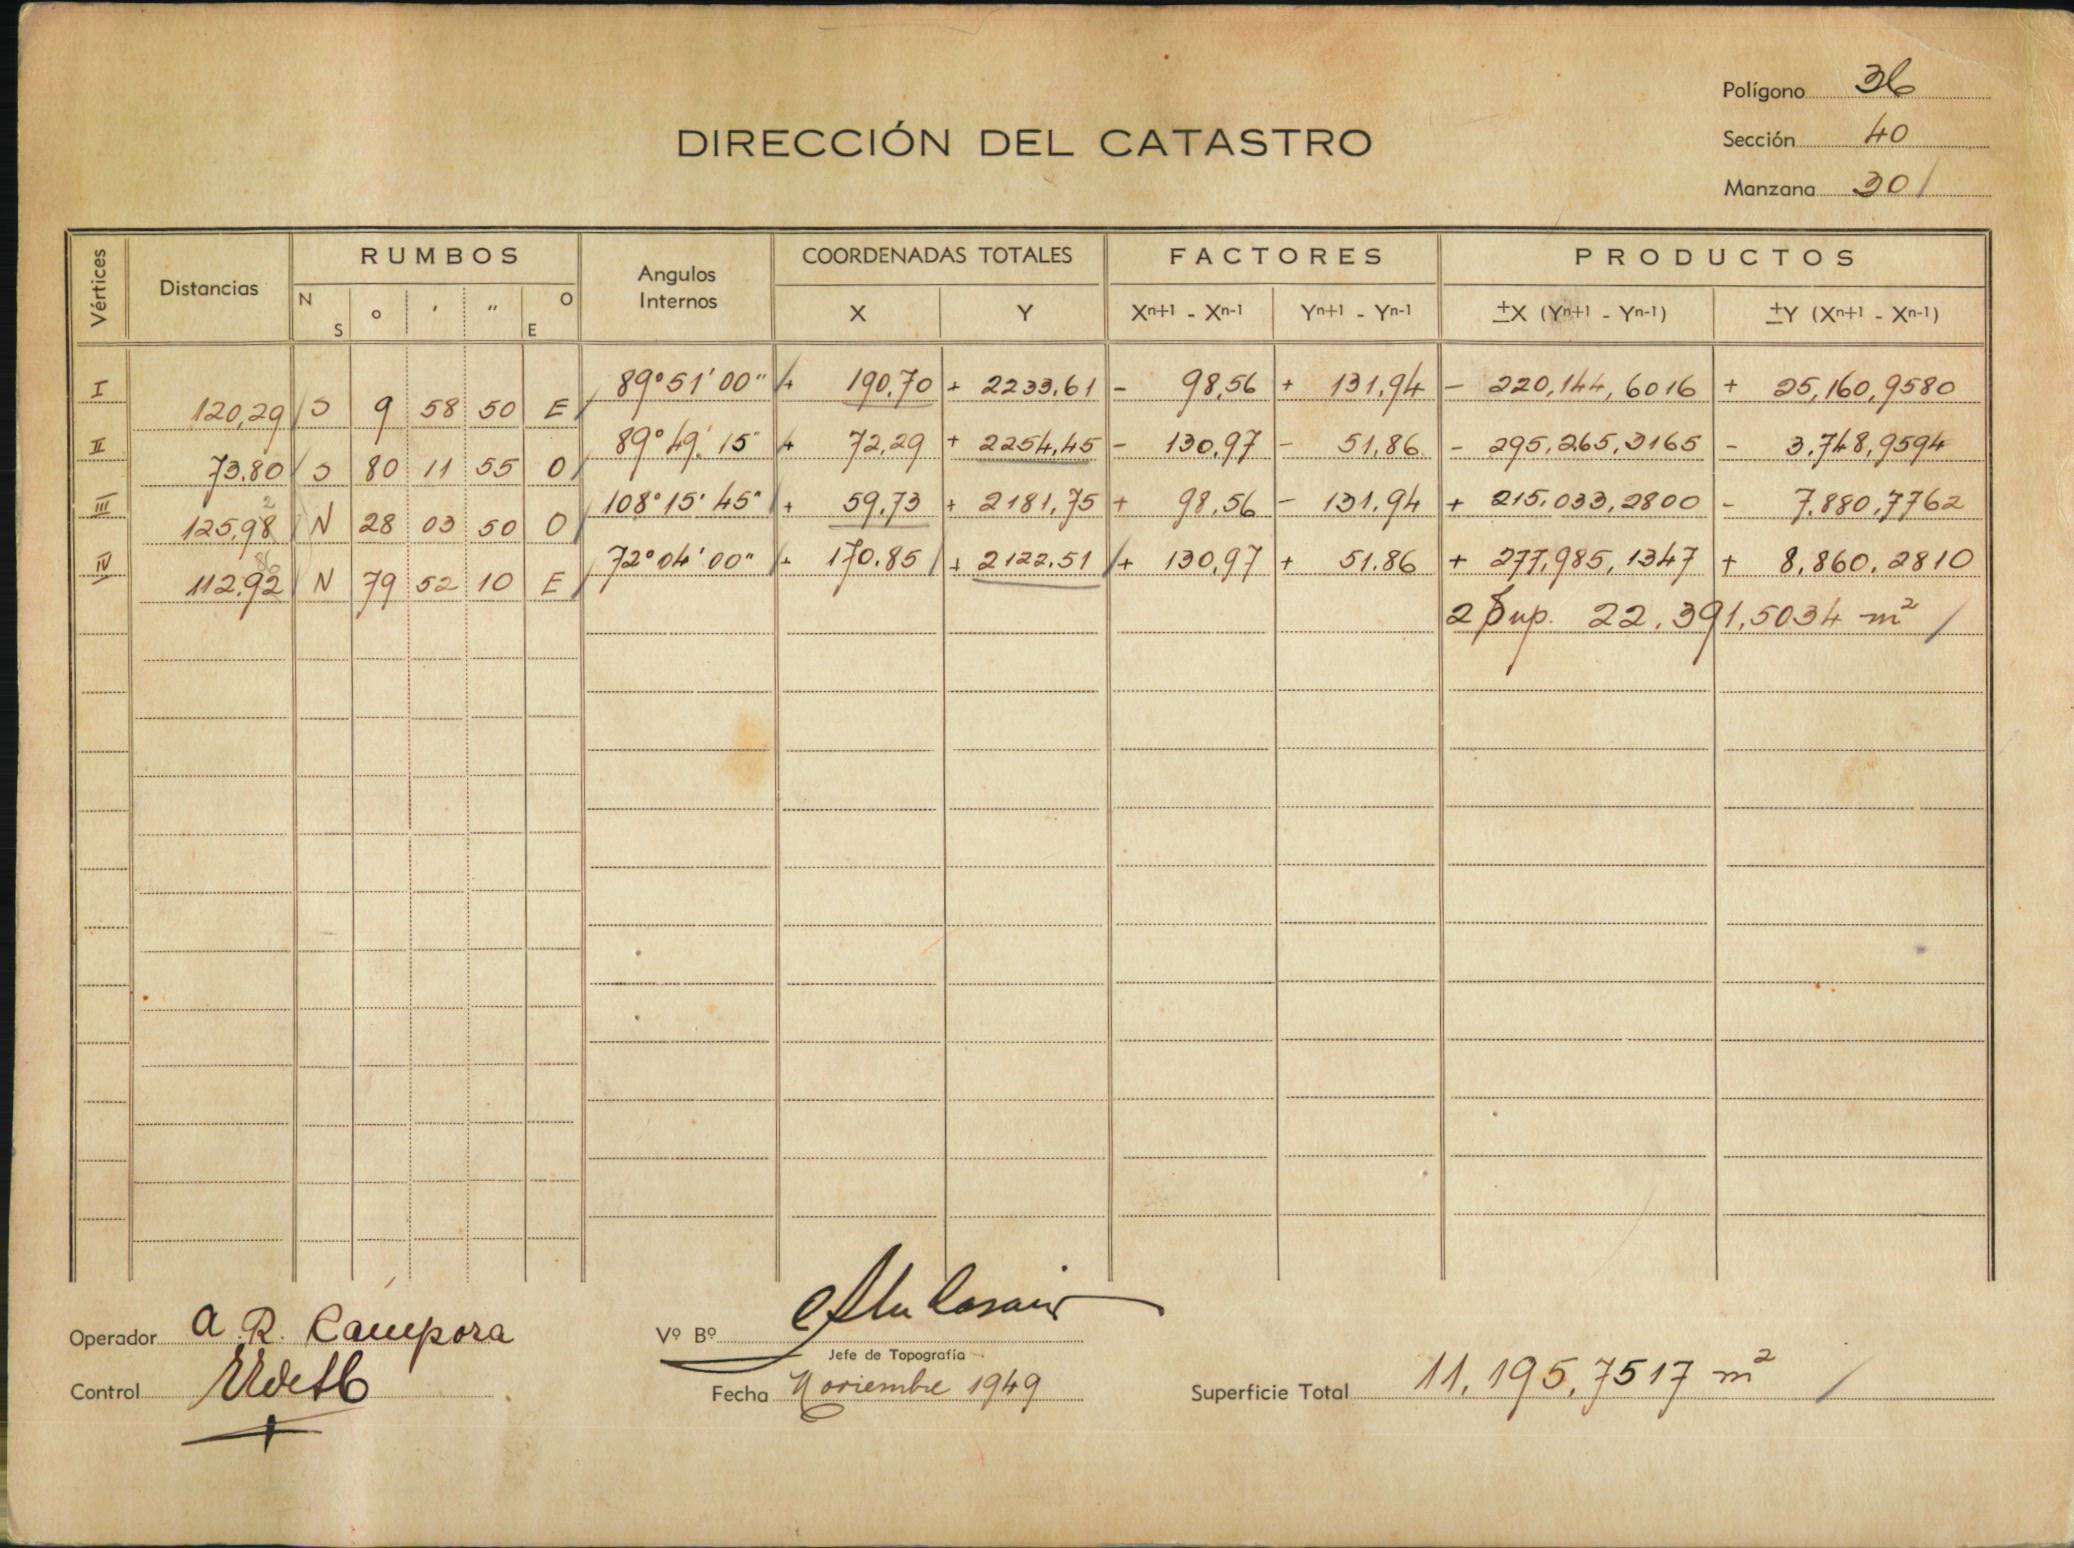 Polígono 36
DIRECCIÓN DEL CATASTRO
Sección 40
Manzana 301
Vértices Distancias RUMBOS Angulos Internos COORDENADAS TOTALES FACTORES PRODUCTOS
N S o ' " O E X Y Xn+1 - Xn-1 Yn+1 - Yn-1 ±X (Yn+1 - Yn-1) ±Y (Xn+1 - Xn-1)
I 89°51'00" + 190.70 + 2233.61 - 98,56 + 131,94 - 220,144,6016 + 25,160,9580
120,29 S 9 58 50 E
II 89°49'15" + 72,29 + 2254,45 - 130,97 - 51,86 - 295.265,3165 - 3.748,9594
73.80 S 80 11 55 O
III 108°15'45" + 59.73 + 2181,75 + 98,56 - 131.94 + 215.033,2800 - 7.880,7762
2
125,98 N 28 03 50 O
IV 72°04'00" + 170.85 + 2122.51 + 130,97 + 51.86 + 277,985,1347 + 8,860.2810
86
112.92 N 79 52 10 E
2 Sup. 22.391,5034 m²
Operador A. R. Campora
Vº Bº
Jefe de Topografía
Control
Fecha Noviembre 1949
Superficie Total 11,195,7517 m²